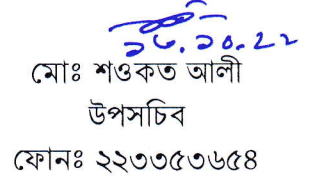 ১৮.১০.২২
মোঃ শওকত আলী
উপসচিব
ফোনঃ ২২৩৩৫৩৬৫৪